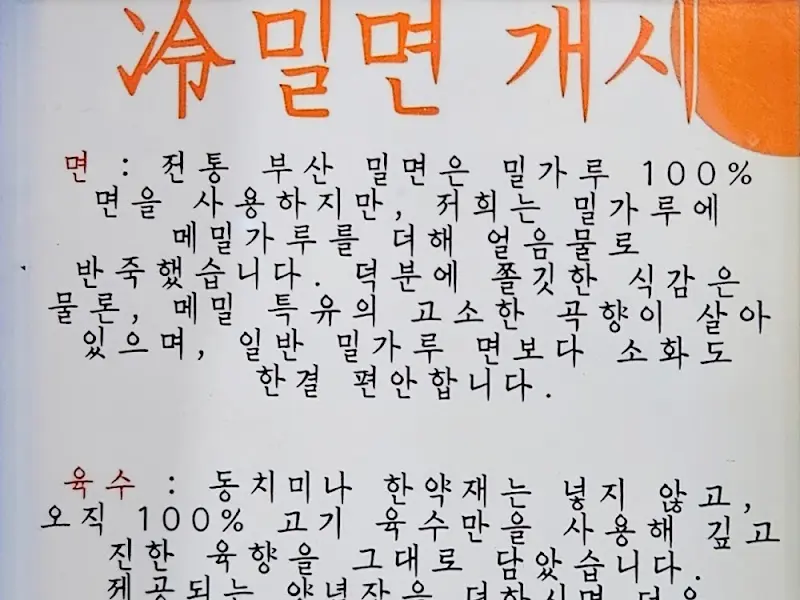 冷밀면 개시
면 : 전통 부산 밀면은 밀가루 100%
면을 사용하지만, 저희는 밀가루에
메밀가루를 더해 얼음물로
반죽했습니다. 덕분에 쫄깃한 식감은
물론, 메밀 특유의 고소한 곡향이 살아
있으며, 일반 밀가루 면보다 소화도
한결 편안합니다.
육수 : 동치미나 한약재는 넣지 않고,
오직 100% 고기 육수만을 사용해 깊고
진한 육향을 그대로 담았습니다.
제공되는 양념장을 더하시면 더욱